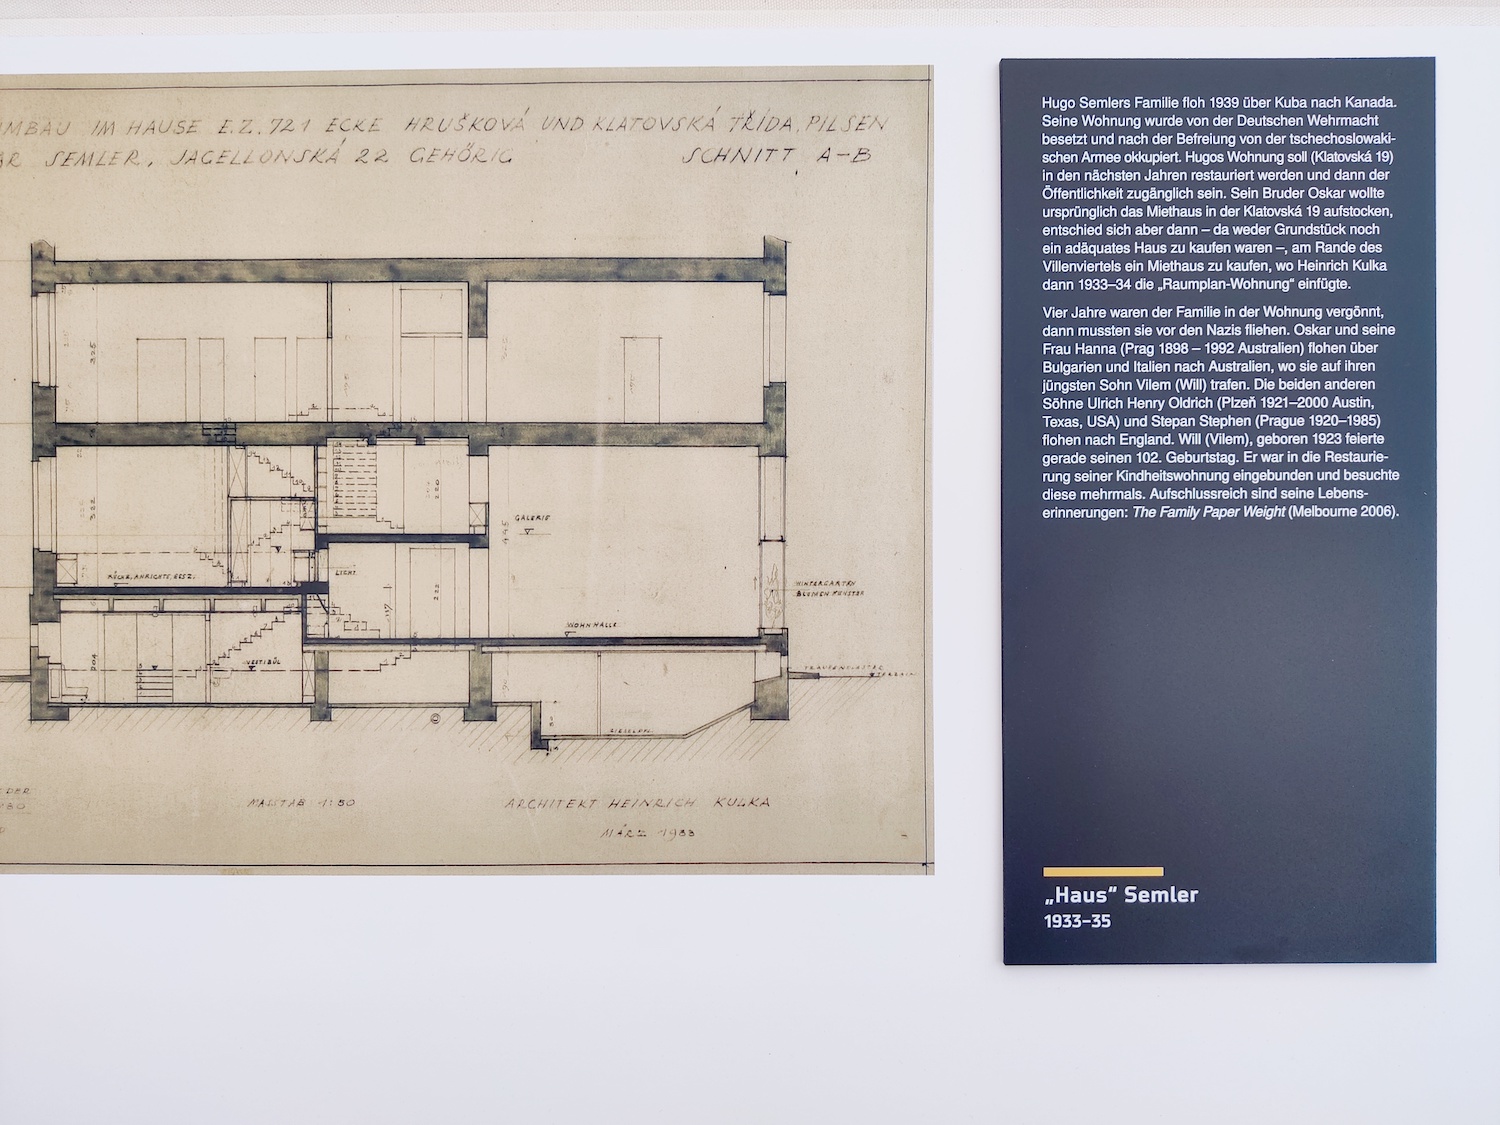 UMBAU IM HAUSE E.Z. 721 ECKE HRUŠKOVÁ UND KLATOVSKÁ TŘÍDA, PILSEN
SEMLER, JAGELLONSKÁ 22 GEHÖRIG
SCHNITT A-B
325
322
220
GALERIE
445
KÜCHE, ANRICHTE, GESZ.
LICHT
222
WINTERGARTEN
BLUMENFENSTER
WOHNHALLE
204
VESTIBÜL
TERRAIN
DER
MASSTAB 1:50
ARCHITEKT HEINRICH KULKA
MÄRZ 1933
Hugo Semlers Familie floh 1939 über Kuba nach Kanada.
Seine Wohnung wurde von der Deutschen Wehrmacht
besetzt und nach der Befreiung von der tschechoslowaki-
schen Armee okkupiert. Hugos Wohnung soll (Klatovská 19)
in den nächsten Jahren restauriert werden und dann der
Öffentlichkeit zugänglich sein. Sein Bruder Oskar wollte
ursprünglich das Miethaus in der Klatovská 19 aufstocken,
entschied sich aber dann – da weder Grundstück noch
ein adäquates Haus zu kaufen waren –, am Rande des
Villenviertels ein Miethaus zu kaufen, wo Heinrich Kulka
dann 1933–34 die „Raumplan-Wohnung“ einfügte.
Vier Jahre waren der Familie in der Wohnung vergönnt,
dann mussten sie vor den Nazis fliehen. Oskar und seine
Frau Hanna (Prag 1898 – 1992 Australien) flohen über
Bulgarien und Italien nach Australien, wo sie auf ihren
jüngsten Sohn Vilem (Will) trafen. Die beiden anderen
Söhne Ulrich Henry Oldrich (Plzeň 1921–2000 Austin,
Texas, USA) und Stepan Stephen (Prague 1920–1985)
flohen nach England. Will (Vilem), geboren 1923 feierte
gerade seinen 102. Geburtstag. Er war in die Restaurie-
rung seiner Kindheitswohnung eingebunden und besuchte
diese mehrmals. Aufschlussreich sind seine Lebens-
erinnerungen: The Family Paper Weight (Melbourne 2006).
„Haus“ Semler
1933–35